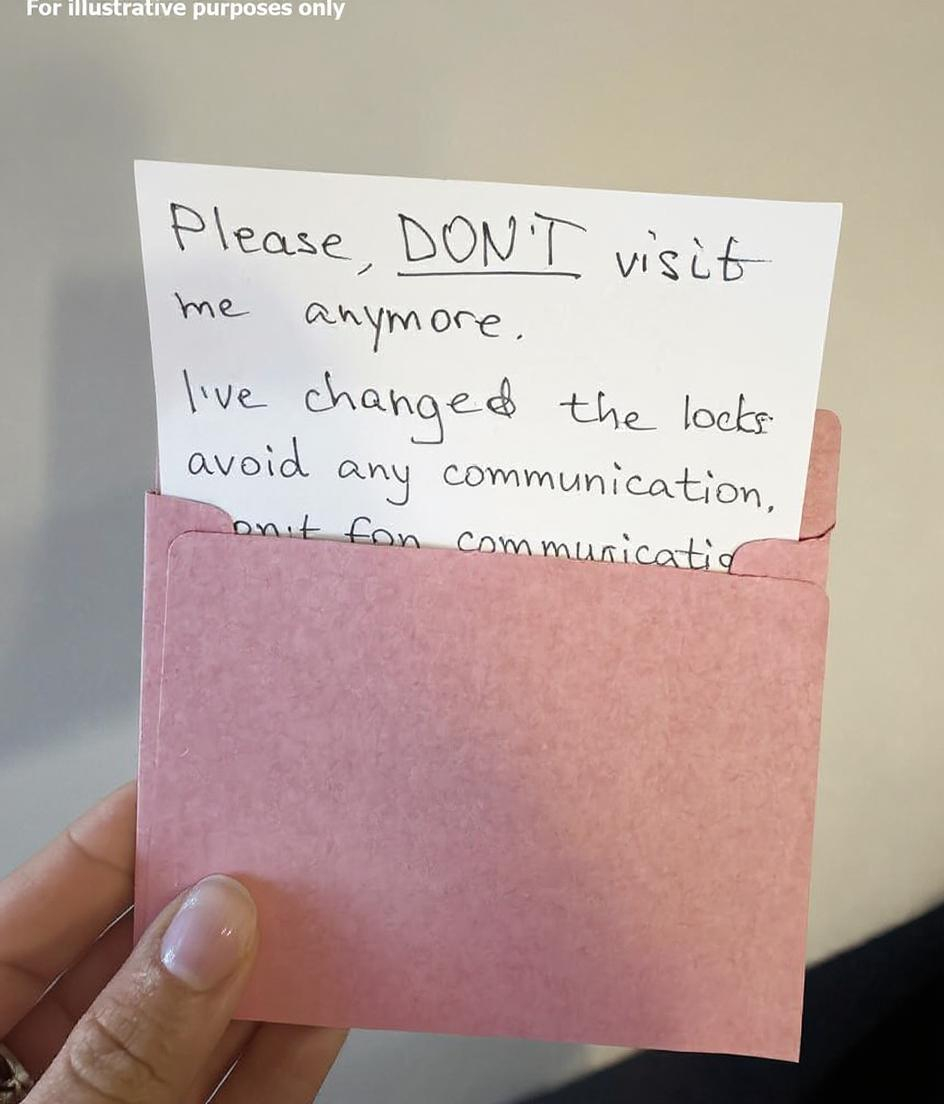 For illustrative purposes only
Please, DON'T visit
me anymore.
I've changed the locks
avoid any communication,
for communicatio